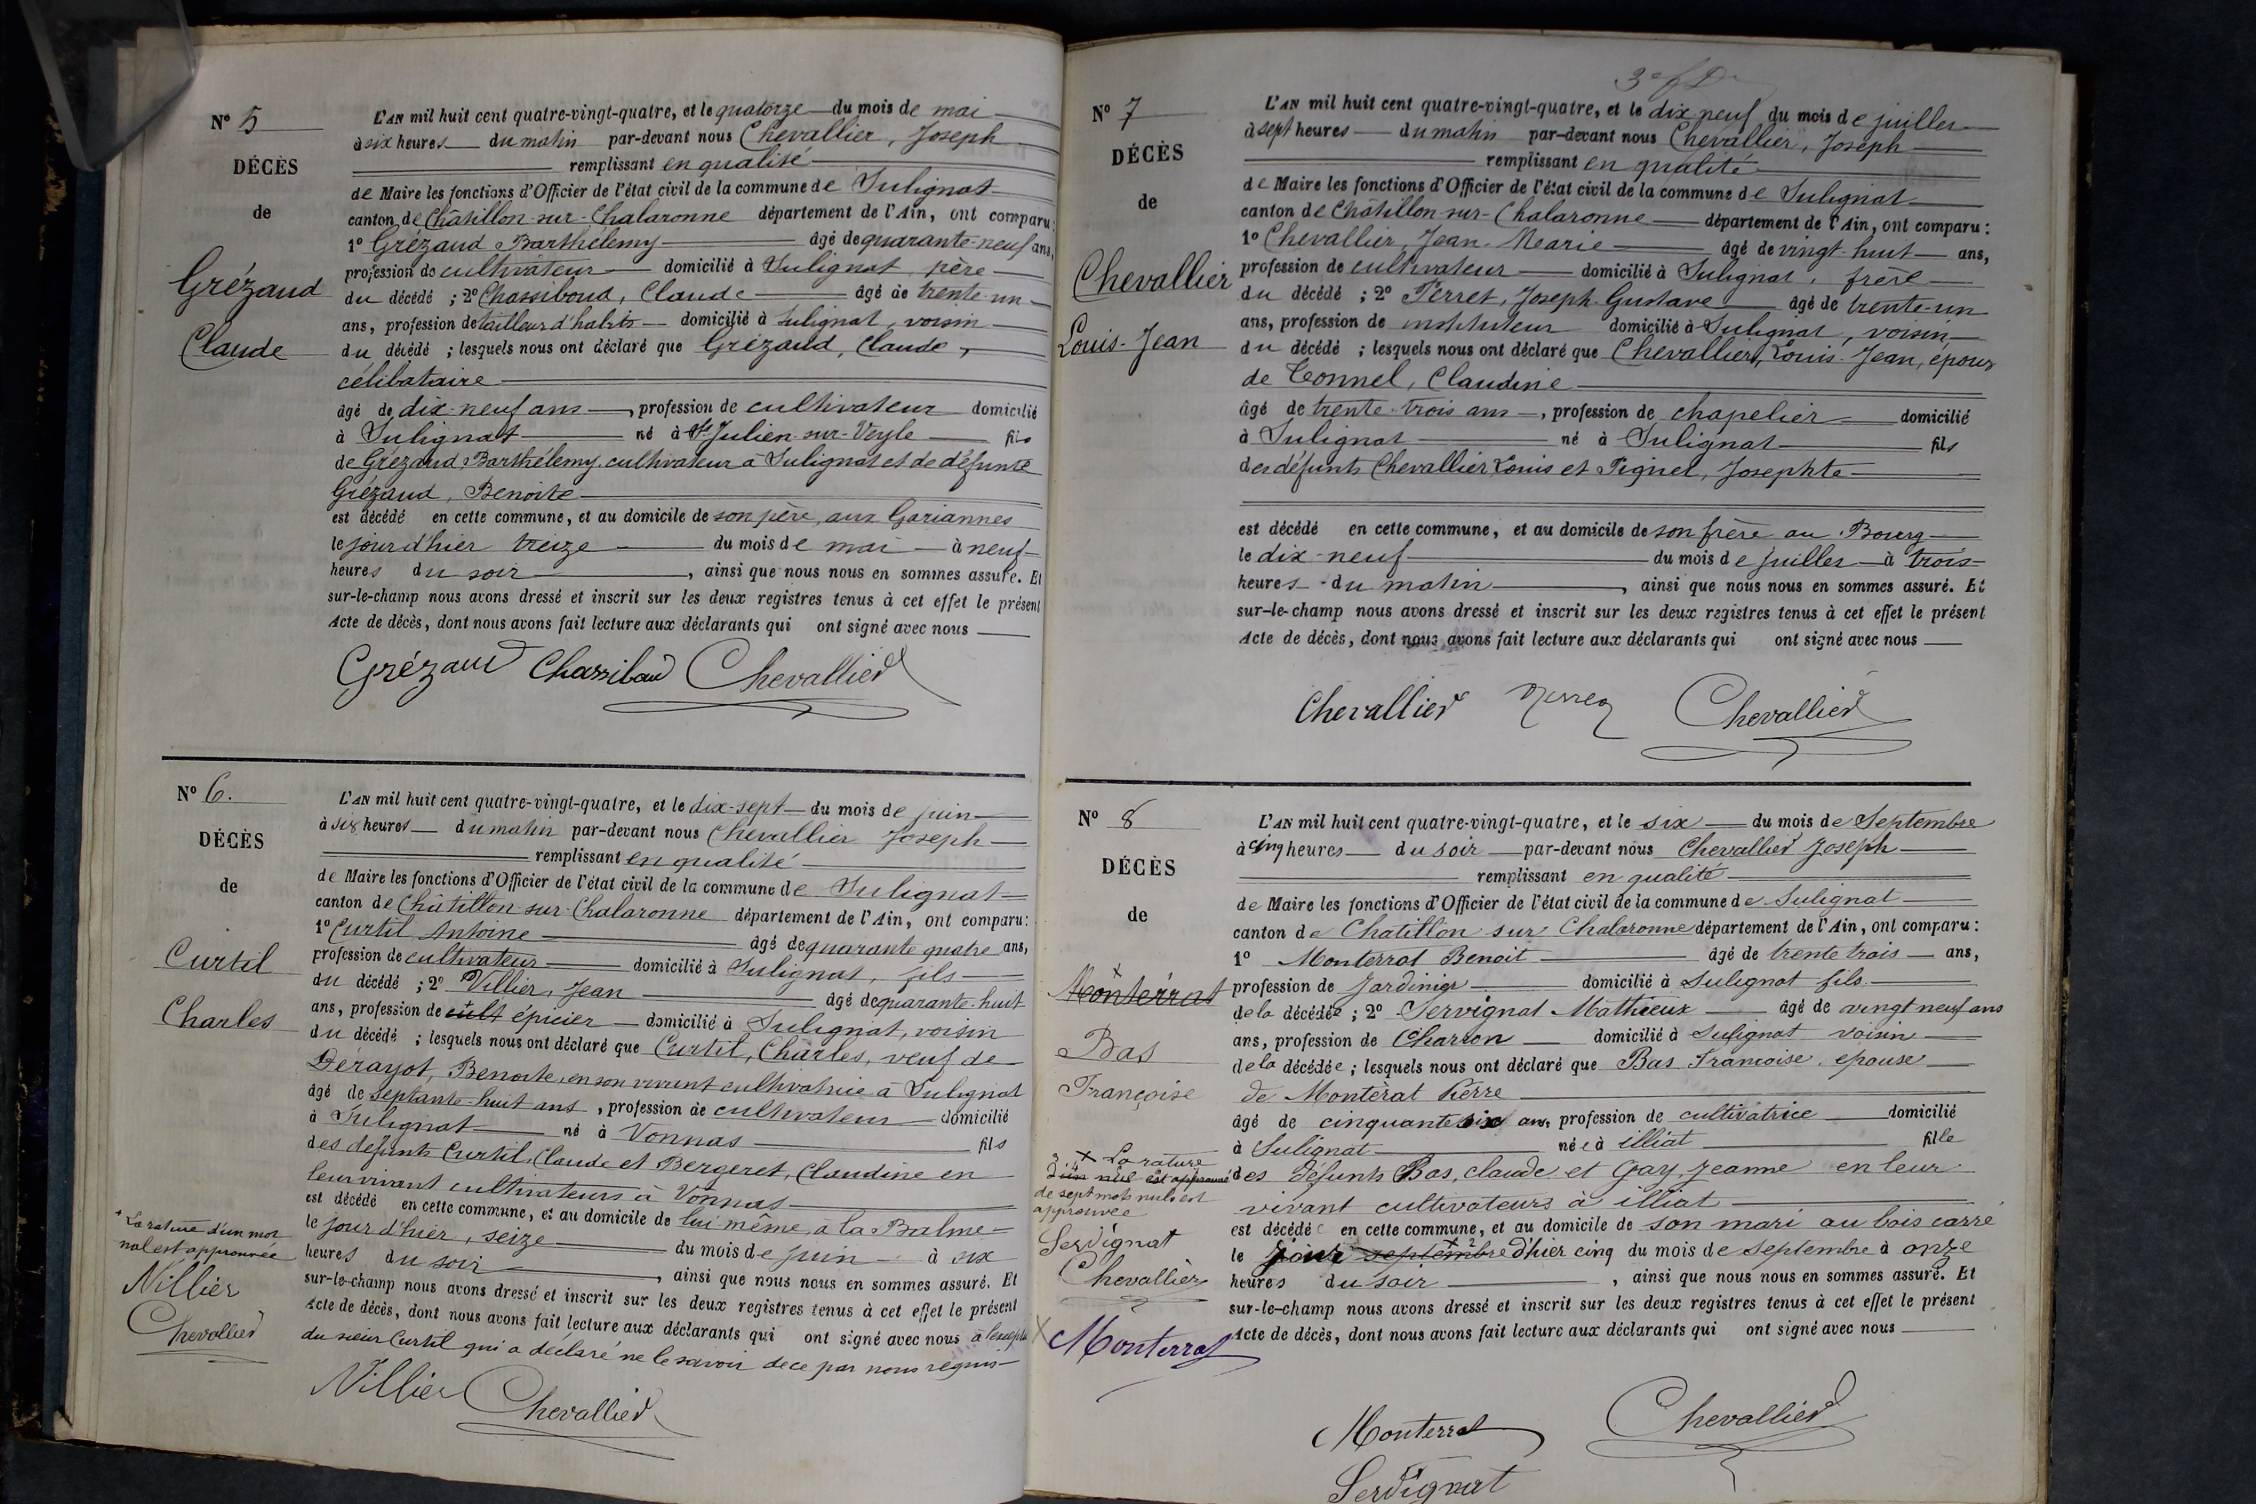 Nº 5
DÉCÈS
de
Grézaud
Claude
L'AN mil huit cent quatre-vingt-quatre, et le quatorze du mois de mai
à six heures du matin par-devant nous Chevallier, Joseph
remplissant en qualité
de Maire les fonctions d'Officier de l'état civil de la commune de Sulignat
canton de Châtillon-sur-Chalaronne département de l'Ain, ont comparu:
1º Grézaud Barthélemy âgé de quarante-neuf ans,
profession de cultivateur domicilié à Sulignat, père
du décédé ; 2º Chassiboud, Claude âgé de trente-un
ans, profession de tailleur d'habits domicilié à Sulignat, voisin
du décédé ; lesquels nous ont déclaré que Grézaud, Claude,
célibataire
âgé de dix-neuf ans, profession de cultivateur domicilié
à Sulignat né à St Julien-sur-Veyle fils
de Grézaud Barthélemy, cultivateur à Sulignat et de défunte
Grézaud, Benoite
est décédé en cette commune, et au domicile de son père, aux Gariannes
le jour d'hier treize du mois de mai à neuf
heures du soir, ainsi que nous nous en sommes assuré. Et
sur-le-champ nous avons dressé et inscrit sur les deux registres tenus à cet effet le présent
Acte de décès, dont nous avons fait lecture aux déclarants qui ont signé avec nous
Grézaud Chassiboud Chevallier
Nº 6.
DÉCÈS
de
Curtil
Charles
L'AN mil huit cent quatre-vingt-quatre, et le dix-sept du mois de juin
à six heures du matin par-devant nous Chevallier Joseph
remplissant en qualité
de Maire les fonctions d'Officier de l'état civil de la commune de Sulignat
canton de Châtillon-sur-Chalaronne département de l'Ain, ont comparu:
1º Curtil Antoine âgé de quarante quatre ans,
profession de cultivateur domicilié à Sulignat, fils
du décédé ; 2º Villier, Jean âgé de quarante-huit
ans, profession de cult épicier domicilié à Sulignat, voisin
du décédé ; lesquels nous ont déclaré que Curtil, Charles, veuf de
Dérayot, Benoite, en son vivant cultivatrice à Sulignat
âgé de septante-huit ans, profession de cultivateur domicilié
à Sulignat né à Vonnas fils
des défunts Curtil, Claude et Bergeret, Claudine en
leur vivant cultivateurs à Vonnas
est décédé en cette commune, et au domicile de lui même, à la Balme
le jour d'hier, seize du mois de juin à six
heures du soir, ainsi que nous nous en sommes assuré. Et
sur-le-champ nous avons dressé et inscrit sur les deux registres tenus à cet effet le présent
Acte de décès, dont nous avons fait lecture aux déclarants qui ont signé avec nous à l'exception
du sieur Curtil qui a déclaré ne le savoir de ce par nous requis
La rature d'un mot
nul est approuvée
Villier
Chevallier
Villier Chevallier
Nº 7
DÉCÈS
de
Chevallier
Louis-Jean
L'AN mil huit cent quatre-vingt-quatre, et le dix neuf du mois de juillet
à sept heures du matin par-devant nous Chevallier, Joseph
remplissant en qualité
de Maire les fonctions d'Officier de l'état civil de la commune de Sulignat
canton de Châtillon-sur-Chalaronne département de l'Ain, ont comparu:
1º Chevallier, Jean-Marie âgé de vingt-huit ans,
profession de cultivateur domicilié à Sulignat, frère
du décédé ; 2º Perret, Joseph-Gustave âgé de trente-un
ans, profession de instituteur domicilié à Sulignat, voisin
du décédé ; lesquels nous ont déclaré que Chevallier, Louis-Jean, époux
de Tonnel, Claudine
âgé de trente-trois ans, profession de chapelier domicilié
à Sulignat né à Sulignat fils
des défunts Chevallier Louis et Pignet, Josephte
est décédé en cette commune, et au domicile de son frère au Bourg
le dix-neuf du mois de juillet à trois
heures du matin, ainsi que nous nous en sommes assuré. Et
sur-le-champ nous avons dressé et inscrit sur les deux registres tenus à cet effet le présent
Acte de décès, dont nous avons fait lecture aux déclarants qui ont signé avec nous
Chevallier Perret Chevallier
Nº 8
DÉCÈS
de
Montérrat
Bas
Françoise
L'AN mil huit cent quatre-vingt-quatre, et le six du mois de Septembre
à cinq heures du soir par-devant nous Chevallier Joseph
remplissant en qualité
de Maire les fonctions d'Officier de l'état civil de la commune de Sulignat
canton de Chatillon sur Chalaronne département de l'Ain, ont comparu:
1º Monterrat Benoit âgé de trente trois ans,
profession de Jardinier domicilié à Sulignat fils
de la décédée ; 2º Servignat Mathieux âgé de vingt neuf ans
ans, profession de Charron domicilié à Sulignat voisin
de la décédée ; lesquels nous ont déclaré que Bas Francoise épouse
de Montérat Pierre
âgé de cinquante six ans, profession de cultivatrice domicilié
à Sulignat née à illiat fille
des défunts Bas, claude et Gay, Jeanne en leur
vivant cultivateurs à illiat
est décédée en cette commune, et au domicile de son mari au bois carré
le jour septembre d'hier cinq du mois de septembre à onze
heures du soir, ainsi que nous nous en sommes assuré. Et
sur-le-champ nous avons dressé et inscrit sur les deux registres tenus à cet effet le présent
Acte de décès, dont nous avons fait lecture aux déclarants qui ont signé avec nous
La rature
est approuvé
de sept mots nuls est
approuvée
Servignat
Chevallier
Monterrat
Monterrat Chevallier
Servignat